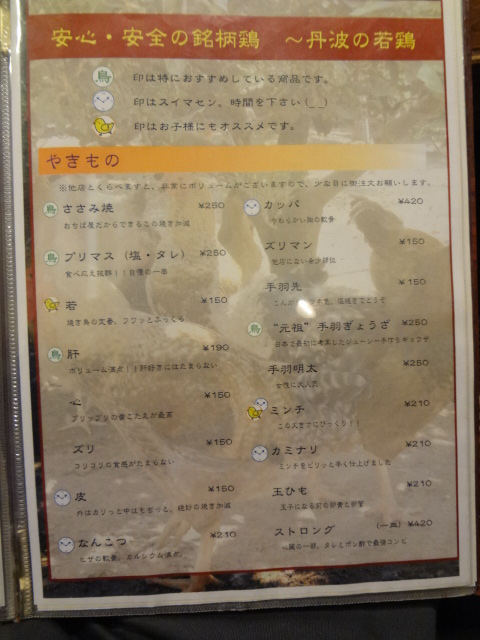 安心・安全の銘柄鶏　〜丹波の若鶏
鳥 印は特におすすめしている商品です。
印はスイマセン、時間を下さい(_ _)
印はお子様にもオススメです。
やきもの
※他店とくらべますと、非常にボリュームがございますので、少な目に御注文お願いします。
鳥 ささみ焼 ¥250
おちば屋だからできるこの焼き加減
鳥 ブリマス（塩・タレ） ¥250
食べ応え抜群！！自慢の一串
若 ¥150
焼き鳥の定番、フワッとふっくら
鳥 肝 ¥190
ボリューム満点！！肝好きにはたまらない
心 ¥150
プリップリの歯ごたえが最高
ズリ ¥150
コリコリの食感がたまらない
皮 ¥150
外はカリっと中はもちっる、絶妙の焼き加減
なんこつ ¥210
ヒザの軟骨、カルシウム満点
カッパ ¥420
やわらかい胸の軟骨
ズリマン ¥150
他店にない希少部位
手羽先 ¥150
鳥 “元祖”手羽ぎょうざ ¥250
日本で最初に考案したジューシー手作りギョウザ
手羽明太 ¥250
女性に大人気
ミンチ ¥210
この大きさにびっくり！！
カミナリ ¥210
ミンチをピリッと辛く仕上げました
玉ひも ¥210
玉子になる前の卵黄と卵管
ストロング (一皿) ¥420
肝の一部、タレとポン酢で最強コンビ